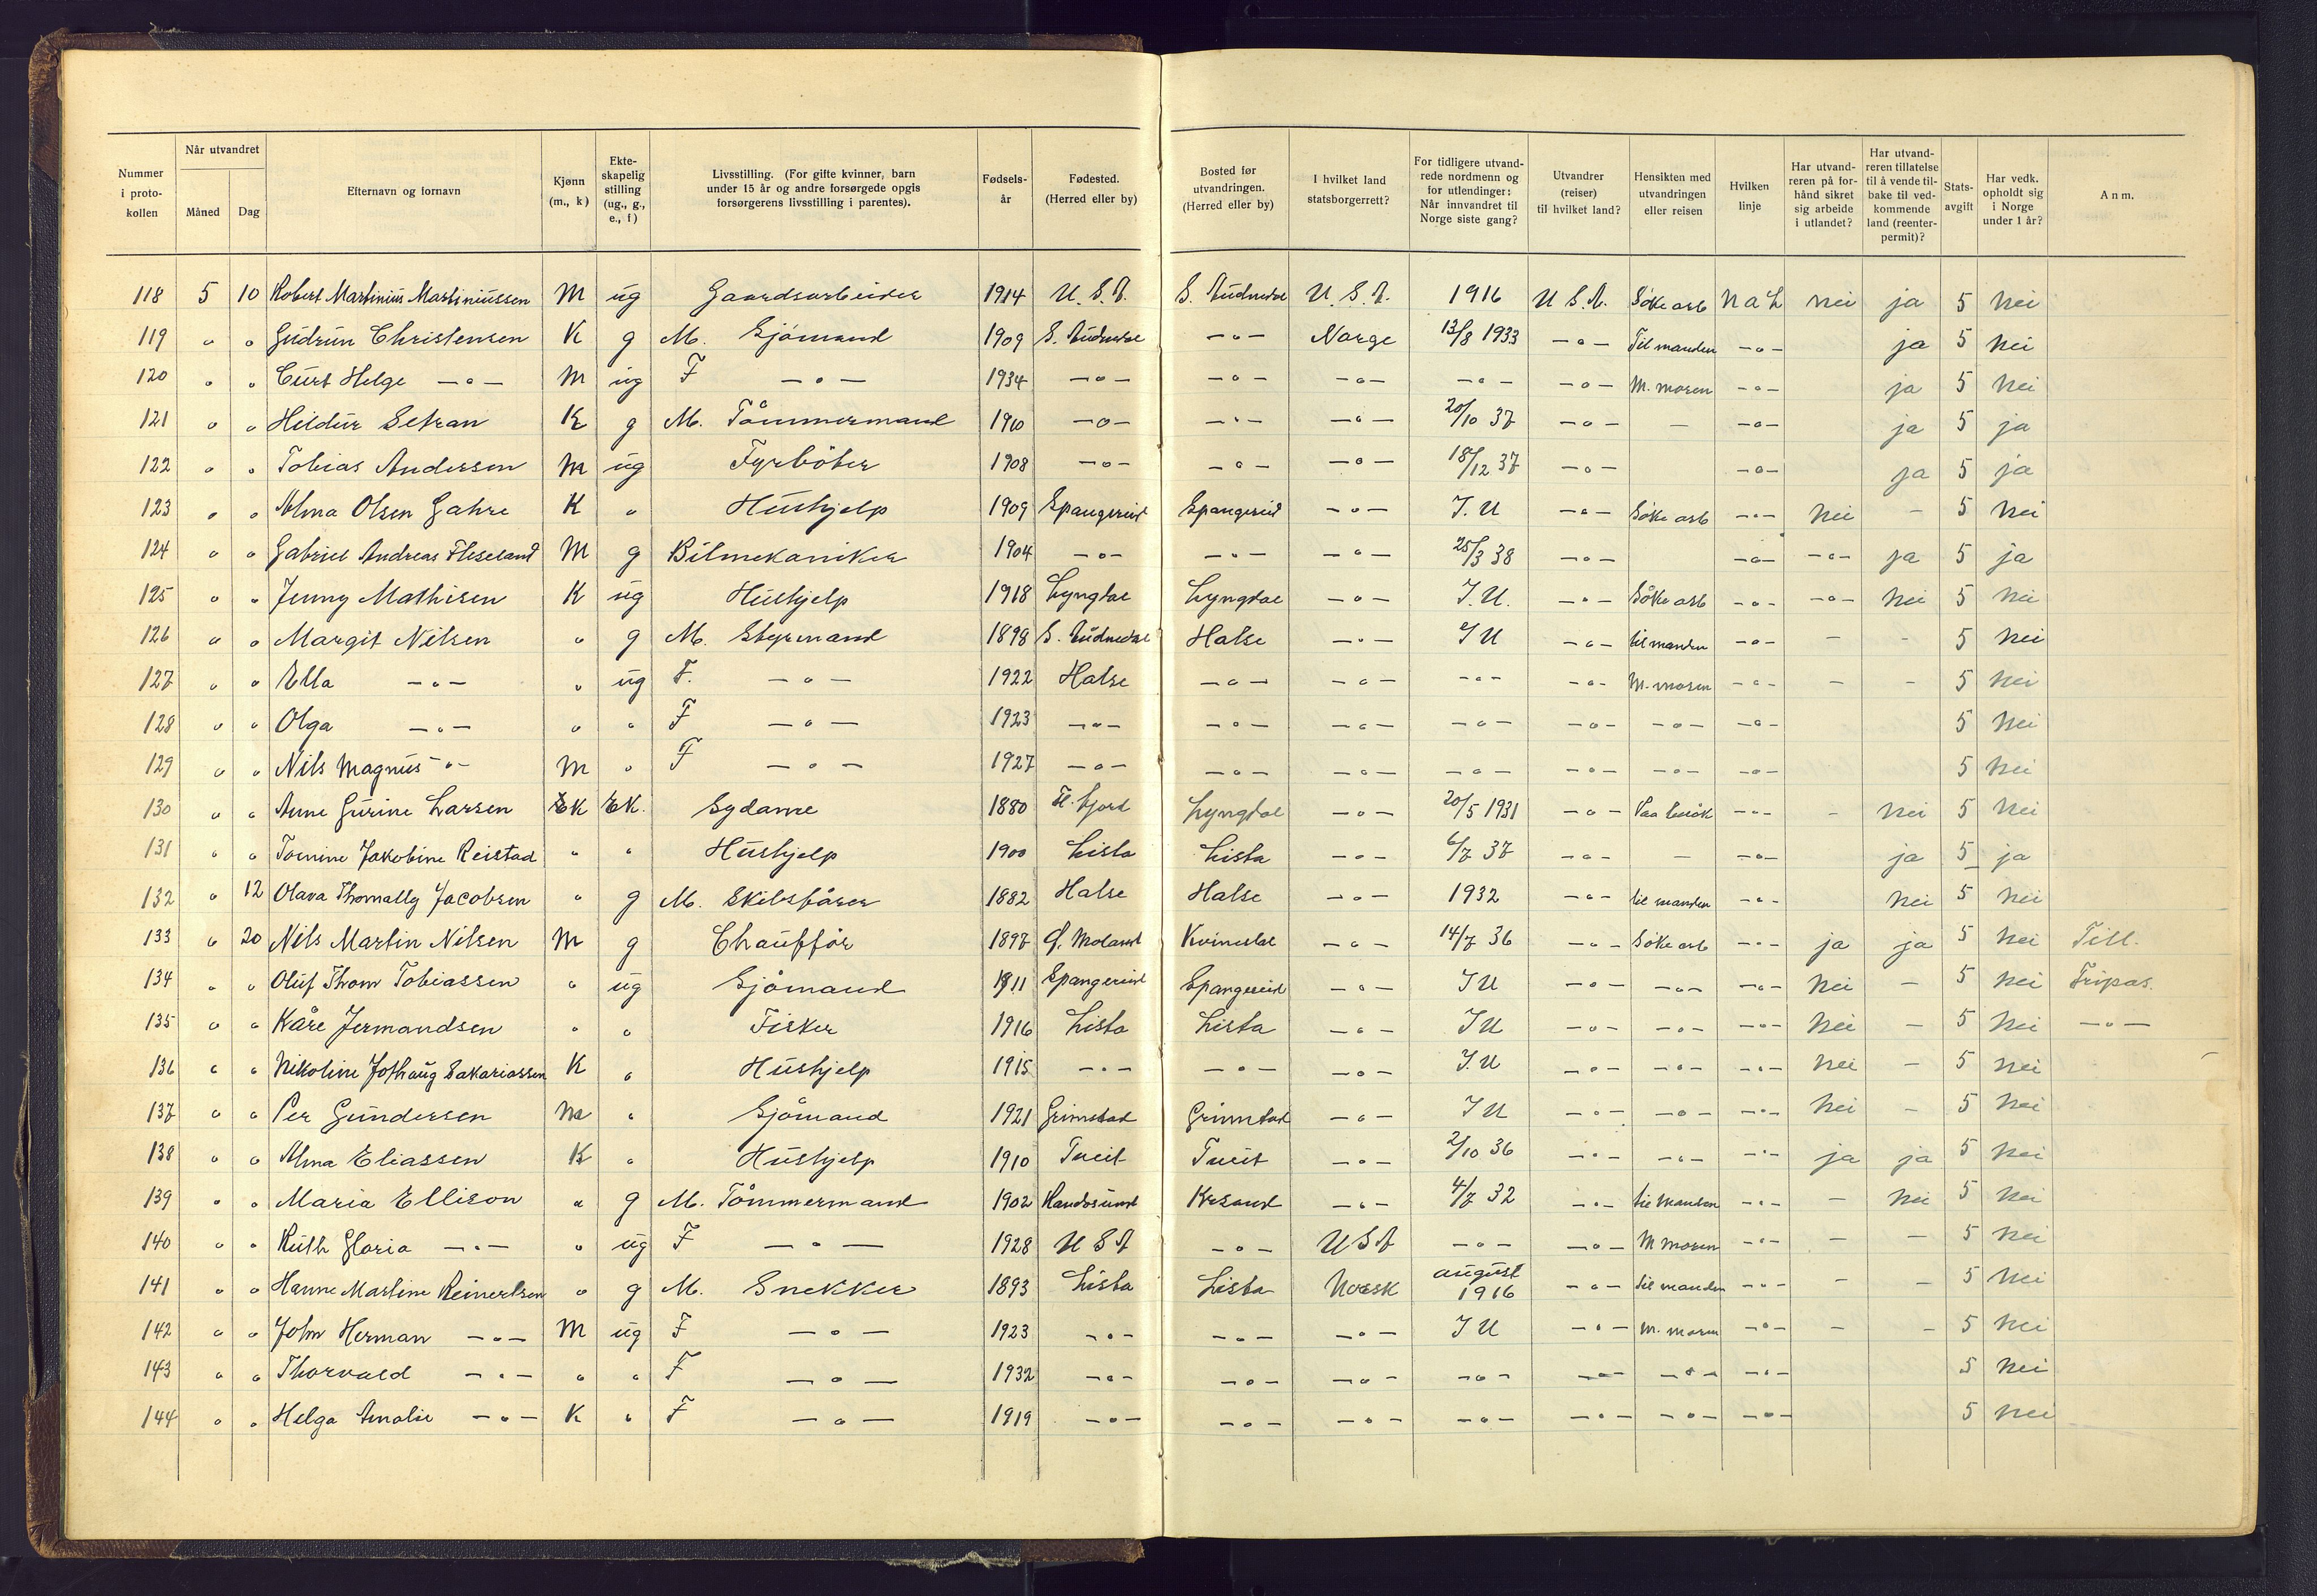 Nummer i proto-kollen | Når utvandret Måned | Dag | Efternavn og fornavn | Kjønn (m., k) | Ekte-skapelig stilling (ug., g., e., f) | Livsstilling. (For gifte kvinner, barn under 15 år og andre forsørgede opgis forsørgerens livsstilling i parentes). | Fødsels-år | Fødested. (Herred eller by) | Bosted før utvandringen. (Herred eller by) | I hvilket land statsborgerrett? | For tidligere utvand-rede nordmenn og for utlendinger: Når innvandret til Norge siste gang? | Utvandrer (reiser) til hvilket land? | Hensikten med utvandringen eller reisen | Hvilken linje | Har utvand-reren på for-hånd sikret sig arbeide i utlandet? | Har utvand-reren tillatelse til å vende til-bake til ved-kommende land (reenter-permit)? | Stats-avgift | Har vedk. opholdt sig i Norge under 1 år? | Anm.
118 | 5 | 10 | Robert Martinius Martiniussen | M | ug | Gaardsarbeider | 1914 | U.S.A. | S. Audnedal | U.S.A. | 1916 | U.S.A. | Söke arb | N a L | nei | ja | 5 | nei
119 | " | " | Gudrun Christensen | K | g | M. Sjömand | 1909 | S. Audnedal | -"- | Norge | 13/8 1933 | -"- | Til manden | -"- | | ja | 5 | nei
120 | " | " | Curt Helge -"- | M | ug | F -"- | 1934 | -"- | -"- | -"- | -"- | -"- | M. moren | -"- | | ja | 5 | nei
121 | " | " | Hildur Setran | K | g | M. Tömmermand | 1910 | -"- | -"- | -"- | 20/10 37 | -"- | - | -"- | | ja | 5 | ja
122 | " | " | Tobias Andersen | M | ug | Fyrböter | 1908 | -"- | -"- | -"- | 18/12 37 | -"- | | -"- | | ja | 5 | ja
123 | " | " | Alma Olsen Gahre | K | " | Hushjelp | 1909 | Spangereid | Spangereid | -"- | I.U | -"- | Söke arb | -"- | Nei | - | 5 | nei
124 | " | " | Gabriel Andreas | M | g | Bilmekaniker | 1904 | -"- | -"- | -"- | 25/3 38 | -"- | | -"- | -"- | ja | 5 | ja
125 | " | " | Jenny Mathisen | K | ug | Hushjelp | 1918 | Lyngdal | Lyngdal | -"- | I.U. | -"- | Söke arb | -"- | -"- | Nei | 5 | nei
126 | " | " | Margit Nilsen | " | g | M. Styrmand | 1898 | S. Audnedal | Halse | -"- | I U | -"- | til manden | -"- | - | - | 5 | nei
127 | " | " | Ella -"- | " | ug | F. -"- | 1922 | Halse | -"- | -"- | -"- | -"- | M. moren | -"- | - | - | 5 | nei
128 | " | " | Olga -"- | " | " | F -"- | 1923 | -"- | -"- | -"- | -"- | -"- | -"- | -"- | | | 5 | nei
129 | " | " | Nils Magnus -"- | M | " | F -"- | 1927 | -"- | -"- | -"- | -"- | -"- | -"- | -"- | | | 5 | nei
130 | " | " | Anne Gurine Larsen | K | EK. | Sydame | 1880 | Fl. fjord | Lyngdal | -"- | 20/5 1931 | -"- | Paa besök | -"- | - | Nei | 5 | nei
131 | " | " | Tomine Jakobine Reistad | " | " | Hushjelp | 1900 | Lista | Lista | -"- | 6/7 37 | -"- | - | -"- | | ja | 5 | ja
132 | " | 12 | Olava Thomally Jacobsen | " | g | M. Skibsförer | 1882 | Halse | Halse | -"- | 1932 | -"- | til manden | -"- | | Nei | 5 | nei
133 | " | 20 | Nils Martin Nilsen | M | g | Chaufför | 1897 | Moland | Kvinesdal | -"- | 14/7 36 | -"- | Söke arb | -"- | ja | ja | 5 | nei | Till.
134 | " | " | Oluf Thom Tobiassen | " | ug | Sjömand | 1911 | Spangereid | Spangereid | -"- | I U | -"- | -"- | -"- | Nei | - | 5 | nei | Fripas.
135 | " | " | Kåre Jermandsen | " | " | Fisker | 1916 | Lista | Lista | -"- | I U | -"- | -"- | -"- | Nei | - | 5 | nei | -"-
136 | " | " | Nikoline Jothaug Sakariassen | K | " | Hushjelp | 1915 | -"- | -"- | -"- | I.U | -"- | -"- | -"- | Nei | - | 5 | nei
137 | " | " | Per Gundersen | M | " | Sjömand | 1921 | Grimstad | Grimstad | -"- | I U | -"- | -"- | -"- | Nei | - | 5 | nei
138 | " | " | Alma Eliassen | K | " | Hushjelp | 1910 | Tveit | Tveit | -"- | 2/10 36 | -"- | -"- | -"- | ja | ja | 5 | nei
139 | " | " | Maria Ellison | " | g | M. Tömmermand | 1902 | Randösund | Krsand | -"- | 4/7 32 | -"- | til Manden | -"- | - | Nei | 5 | nei
140 | " | " | Ruth Gloria -"- | " | ug | F -"- | 1928 | U S A | -"- | U S A | -"- | -"- | M moren | -"- | - | - | 5 | nei
141 | " | " | Hanne Martine Reinertsen | " | g | M. Snekker | 1893 | Lista | Lista | Norsk | august 1916 | -"- | til manden | -"- | - | - | 5 | nei
142 | " | " | John Herman -"- | M | ug | F -"- | 1923 | -"- | -"- | -"- | I U | -"- | M. moren | -"- | - | - | 5 | nei
143 | " | " | Thorvald -"- | " | " | F -"- | 1932 | -"- | -"- | -"- | -"- | -"- | -"- | -"- | | | 5 | nei
144 | " | " | Helga Amalie -"- | K | " | F -"- | 1919 | -"- | -"- | -"- | -"- | -"- | -"- | -"- | | | 5 | nei